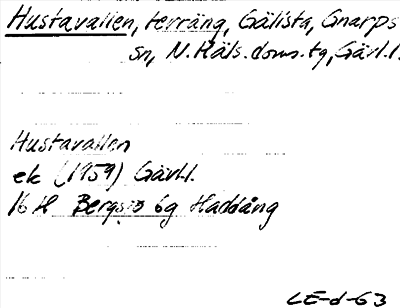 Hustavallen, terräng, Gälsta, Gnarps
sn, N. Häls. doms. tg, Gävl. l.
Hustavallen
ek (1959) Gävl.l.
16 H Bergsjö 6g Haddång
LE-d-63